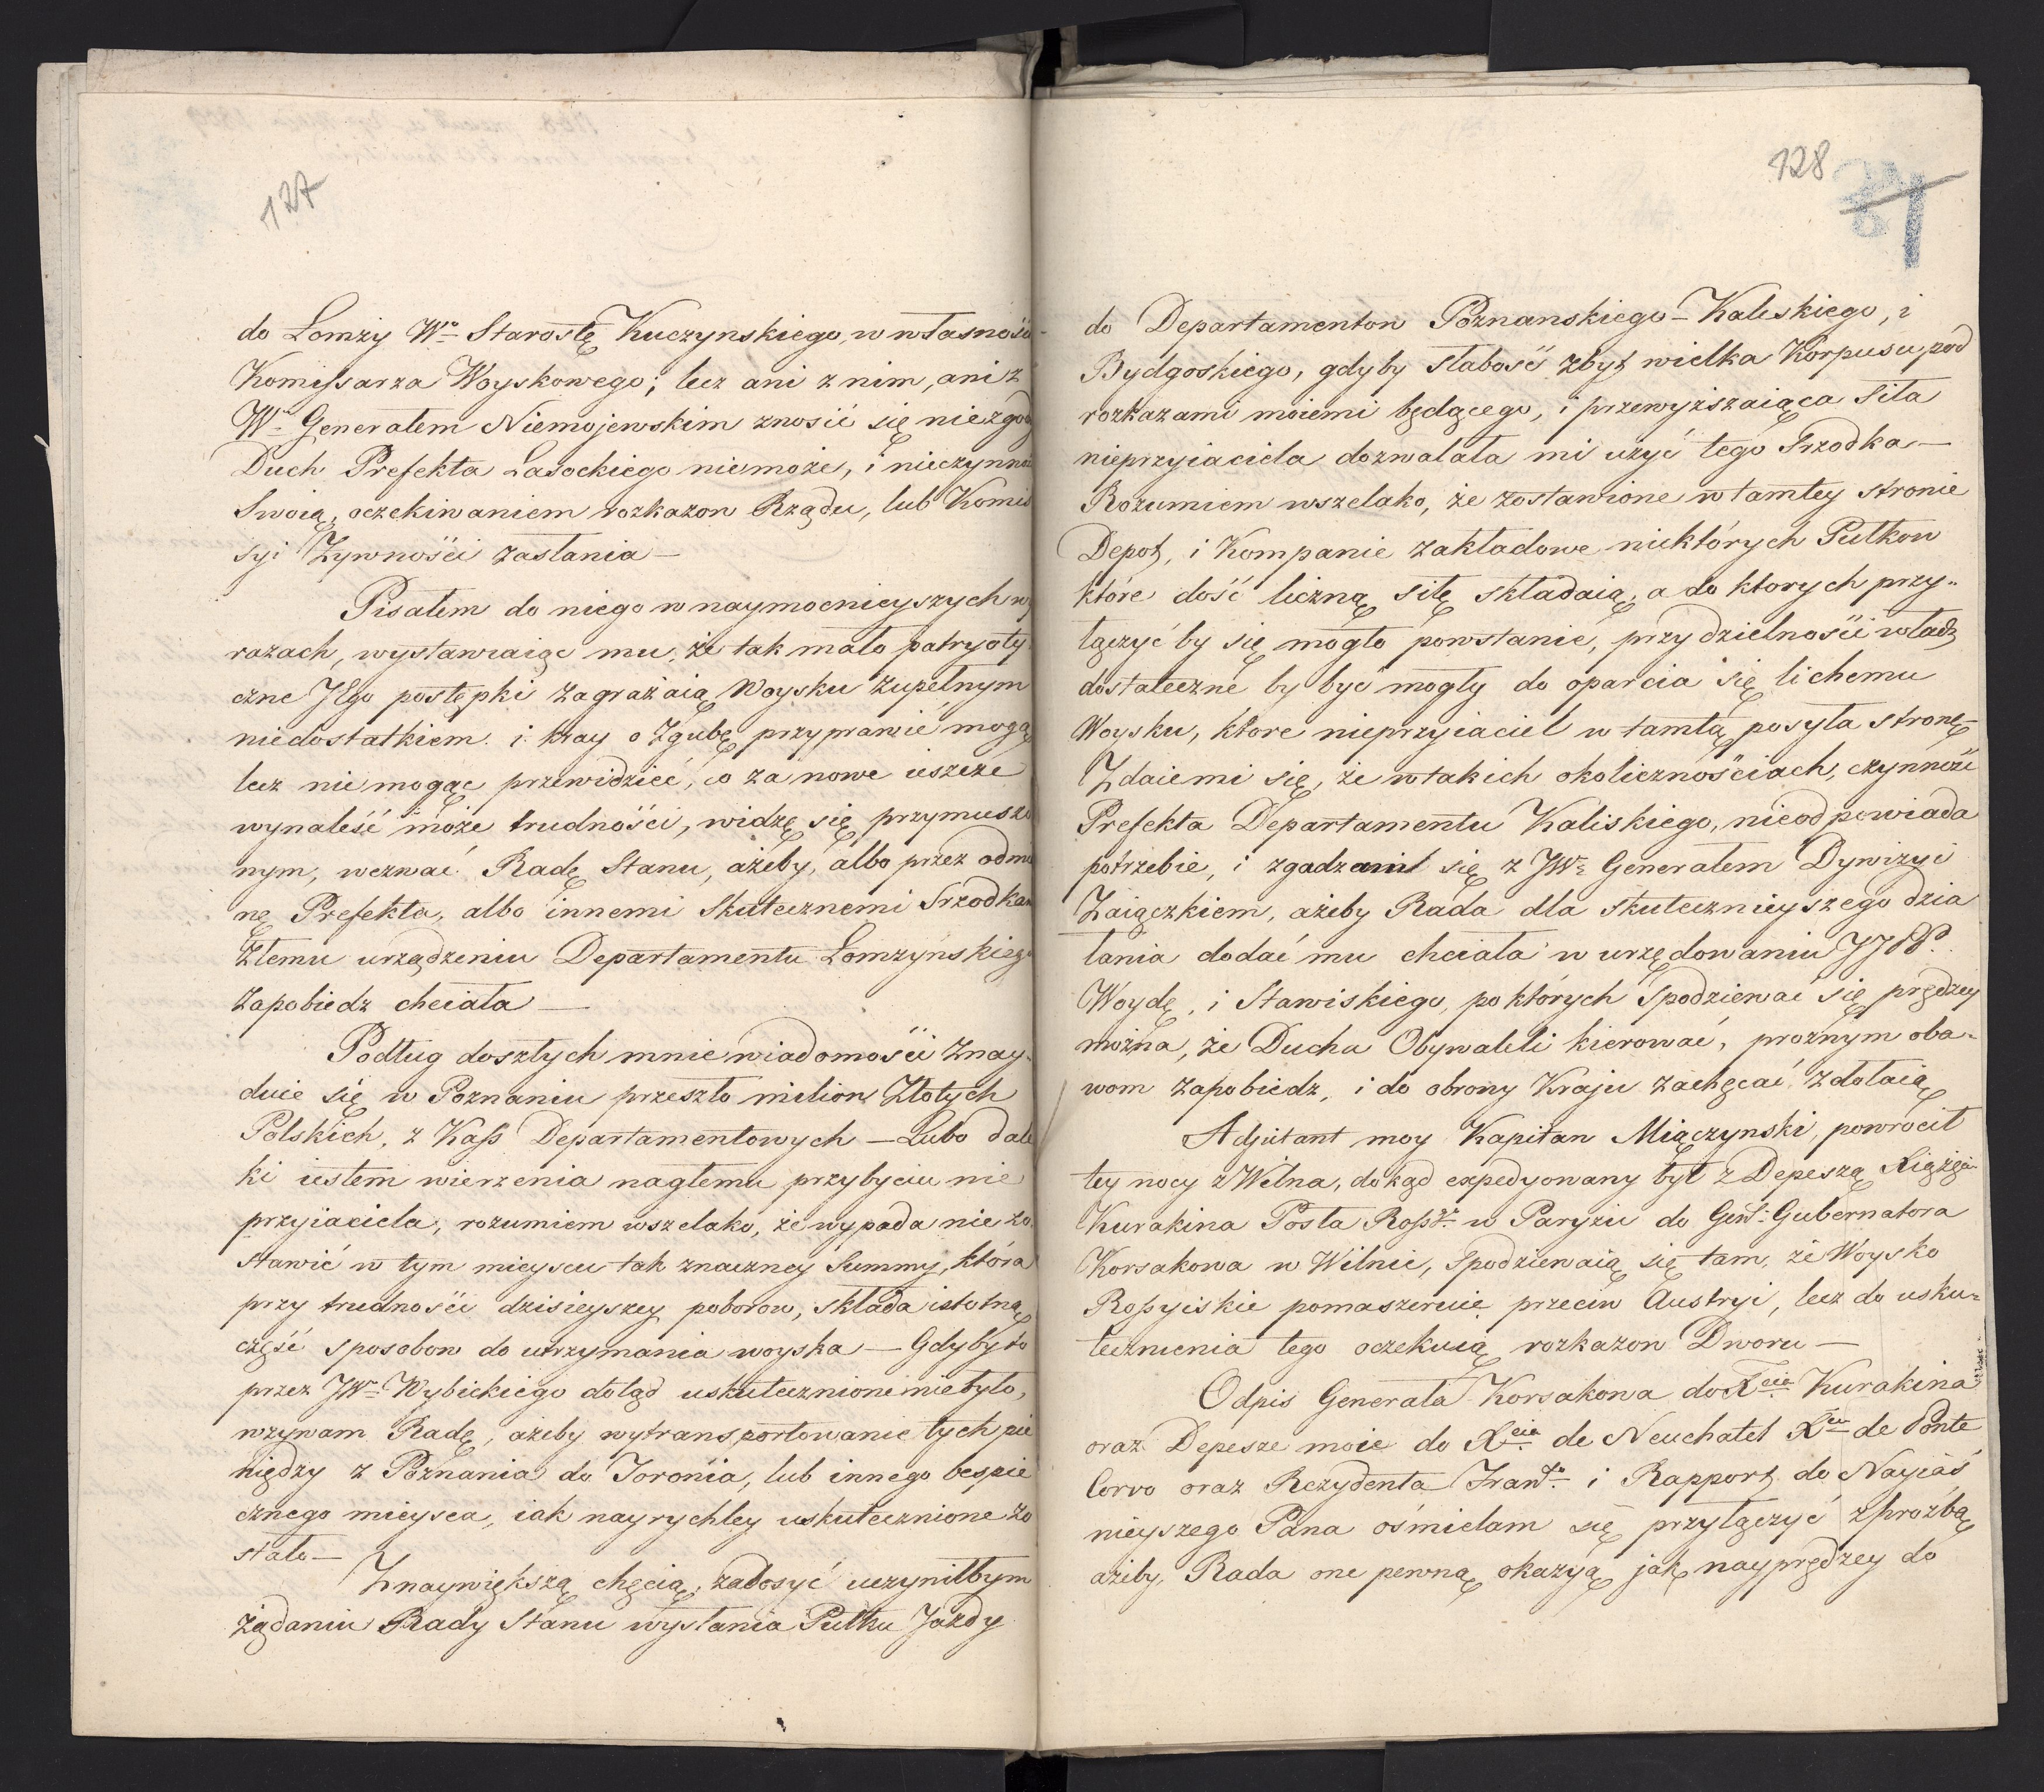 127
do Lomży Wo Starostę Kuczynskiego, w własnośći
Komissarza Woyskowego; lecz ani z nim, ani z
Wo Generałem Niemojewskim znosić się niezgod
Duch Prefekta Lasockiego niemoże, i nieczynność
Swoią, oczekiwaniem rozkazow Rządu, lub Komis
syi Żywnośći zasłania —
Pisałem do niego w naymocnieyszych wy
razach, wystawiaiąc mu, że tak mało patryoty
czne JEgo postępki zagrażaią Woysku zupełnym
niedostatkiem i kray o Zgubę przyprawić mogą
lecz nie mogąc przewidzieć, co za nowe ieszcze
wynaleść może trudnośći, widzę się przymuszo
nym, wezwać Radę Stanu, ażeby, albo przez odmia
nę Prefekta, albo innemi Skutecznemi Srzodkam
Złemu urządzeniu Departamentu Lomzynskiego
Zapobiedz chciała —
Podług doszłych mnie wiadomośći znay-
duie się w Poznaniu przeszło milion Złotych
Polskich, z Kass Departamentowych — Lubo dale
ki iestem wierzenia nagłemu przybyciu nie
przyiaciela, rozumiem wszelako, że wypada nie zo
stawić w tym mieyscu tak znaczney Summy, która
przy trudnośći dzisieyszey poborow, składa istotną
część sposobow do utrzymania woyska — Gdyby to
przez JWo Wybickiego dotąd uskutecznione nie było,
wzywam Radę, ażeby wytransportowanie tych pie
niędzy z Poznania do Toronia, lub innego bespie
cznego mieysca, iak nayrychley uskutecznione zo
stało —
Z naywiększą chęcią, zadosyć uczyniłbym
żądaniu Rady Stanu wysłania Pułku Jazdy
128
do Departamentow Poznanskiego – Kaliskiego, i
Bydgoskiego, gdyby słabość zbyt wielka Korpusu pod
rozkazami moiemi będącego, i przewyższaiąca siła
nieprzyiaciela dozwalała mi użyć tego Srzodka —
Rozumiem wszelako, że zostawione w tamtey stronie
Depot, i Kompanie zakładowe niektórych Pułkow
które dość liczną siłę składaią, a do ktorych przy„
łączyć by się mogło powstanie, przy dzielnośći władz
dostateczne by być mogły do oparcia się lichemu
Woysku, które nieprzyiaciel w tamtą posyła stronę —
Zdaie mi się, że w takich okolicznośćiach, czynność
Prefekta Departamentu Kaliskiego, nieodpowiada
potrzebie, i zgadzam się z JWo Generałem Dywizyi
Zaiączkiem, ażeby Rada dla skutecznieyszego dzia
łania dodać mu chciała w urzędowaniu JJPP.
Woydę, i Stawiskiego, po których Spodziewać się prędzey
można, że Ducha Obywateli kierować, prożnym oba-
wom zapobiedz, i do obrony Kraju zachęcać zdołaią
Adjutant moy Kapitan Miączynski, powrócił
tey nocy z Wilna, dokąd expedyowany był z Depeszą Xiążęcia
Kurakina Posła Ross. w Paryżu do Genł. Gubernatora
Korsakowa w Wilnie, Spodziewaią się tam, że Woysko
Rossyiskie pomaszeruie przeciw Austryi, lecz do usku=
tecznienia tego oczekuią rozkazow Dworu —
Odpis Generała Korsakowa do Xcia Kurakina
oraz Depesze moie do Xcia de Neuchatel Xcia de Ponte
Corvo oraz Rezydenta Franco. i Rapport do Nayiaś
nieyszego Pana ośmielam się przyłączyć z prozbą
ażeby, Rada one pewną okazyą jak nayprędzey do